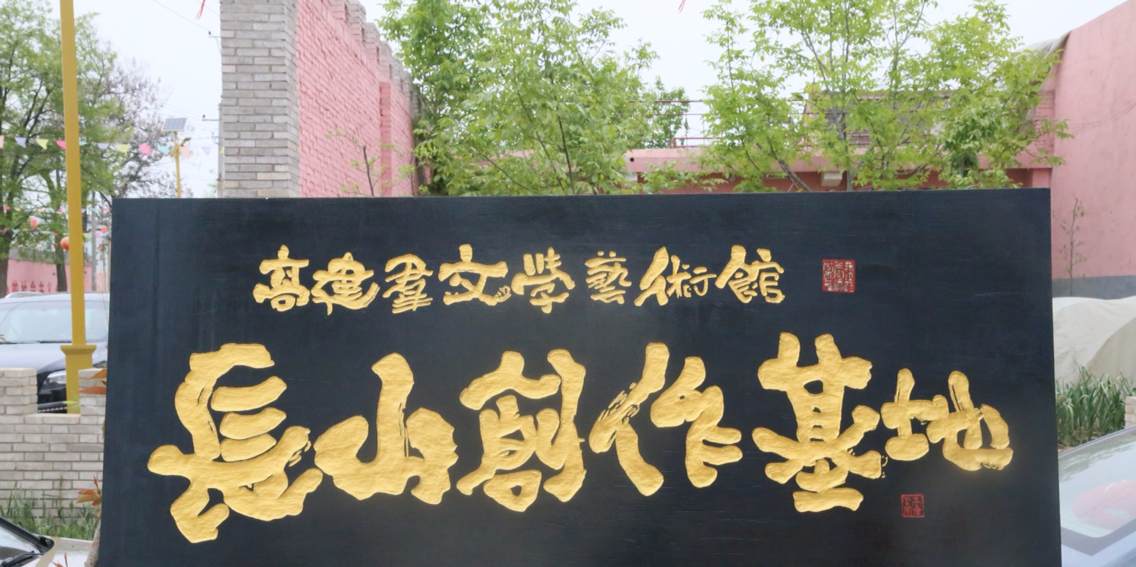 高建羣文學藝術館
長山創作基地